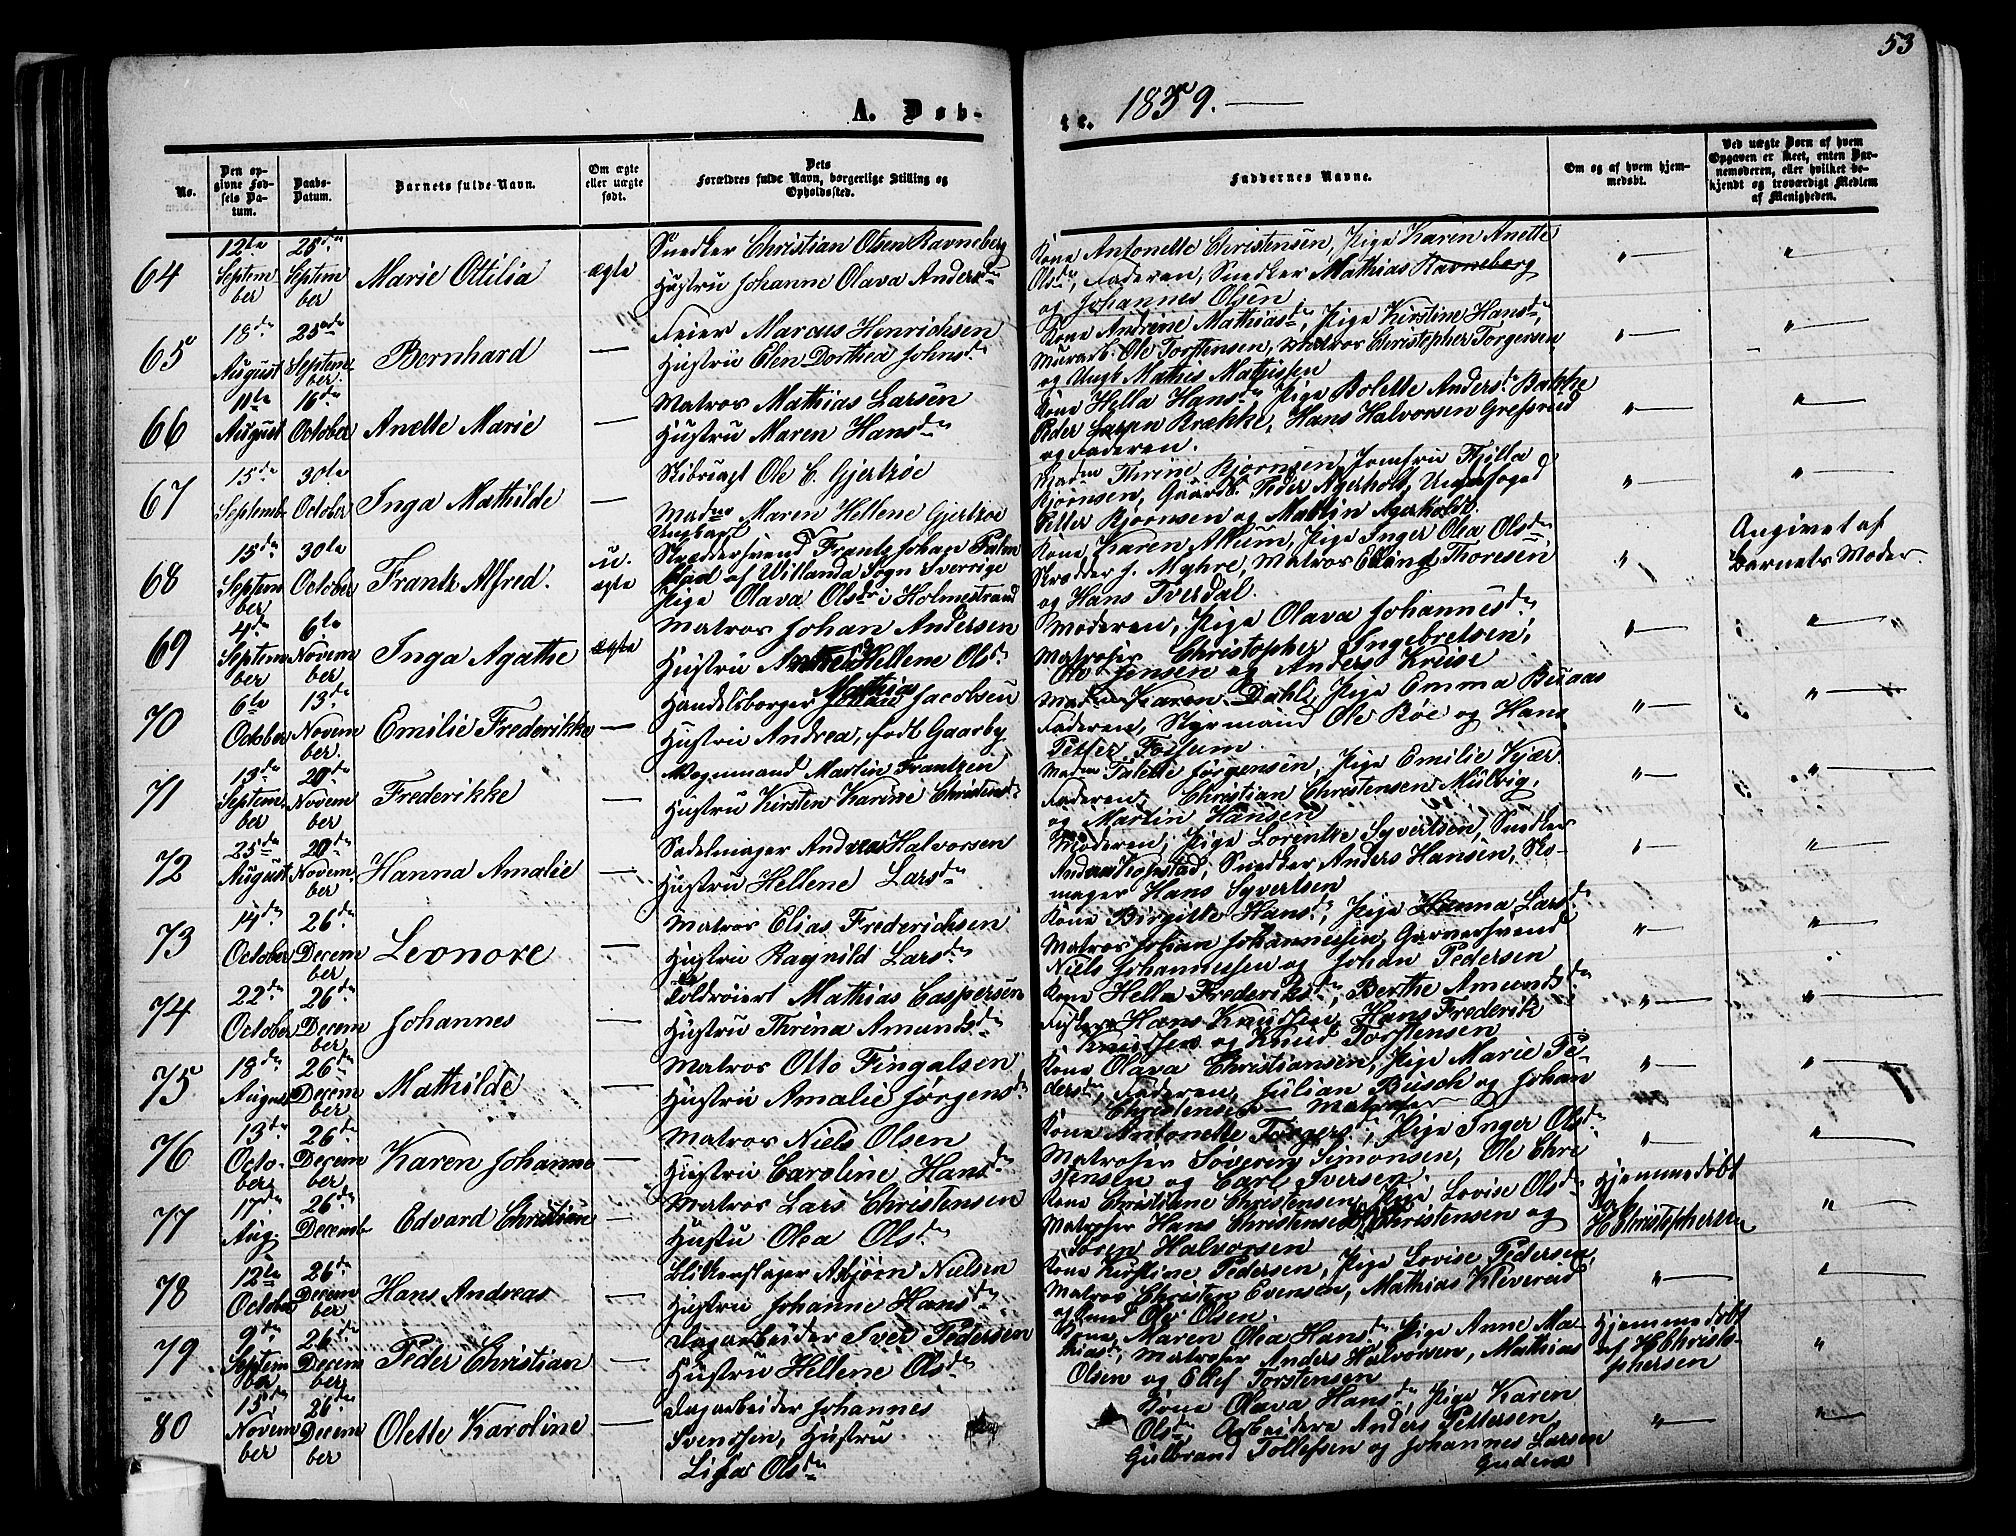 53
A. Døb-
te. 1859.
No.
Den op-
givne Fød-
sels Da-
tum.
Daabs-
Datum.
Barnets fulde Navn.
Om ægte
eller uægte
født.
Dets
Forældres fulde Navn, borgerlige Stilling og
Opholdssted.
Faddernes Navne.
Om og af hvem hjem-
medøbt.
Ved uægte Børn af hvem
Opgaven er skeet, enten Bar-
nemoderen, eller hvilket be-
kjendt og troværdigt Medlem
af Menigheden.
64
12te
Septem
ber
25de
Septem
ber
Marie Ottilia
ægte
Snedker Christian Olsen Ravneberg
Hustru Johanne Olava Andersdn
Kone Antonette Christensen, Pige Karen Anette
Olsdn, Faderen, Snedker Mathias Ravneberg
og Johannes Olsen
" —
"
65
18de
August
25de
Septem
ber
Bernhard
—
Feier Marcus Henriksen
Hustru Elen Dorthea Johnsdn
Kone Andrine Mathiasdn, Pige Kirstine Hansdn,
Murarb. Ole Torstensen, Matros Christopher Torgersen
og Ungk Mathis Mathisen
" —
" —
66
11te
August
16de
October
Anette Marie
—
Matros Mathias Larsen
Hustru Maren Hansdn
Kone Hella Hansdn, Pige Bolette Andersdn Bakke
Peder Brække, Hans Halvorsen
og Faderen.
" —
" —
67
15de
Septemb.
30te
October
Inga Mathilde
—
Ole C. Gjertzøe
Madme Maren Hellene Gjertzøe
Madme Thrine Bjørnsen, Jomfru
Bjørnsen, Peder Agerholt,
Petter Bjørnsen og Martin Agerholt.
" —
" —
68
15de
Septem
ber
30te
October
Frantz Alfred.
u.
ægte
Ungkarl
Skræddersvend Frantz Johan
af Willanda Sogn Sverrige
Pige Olava Olsdr i Holmestrand
Kone Karen, Pige Inger Olea Olsdn,
Skrædder J. Myhre, Matros Elling Thoresen
og Hans Tverdal.
"
Angivet af
Barnets Moder.
69
4de
Septem
ber
6te
Novem
ber
Inga Agathe
ægte
Matros Johan Andersen
Hustru Andrea Hellene Olsdn
Moderen, Pige Olava Johannesdn
Matroser Christopher Ingebretsen,
Ole Jensen og Anders Kreise
" —
" —
70
6te
October
13de
Novem
ber
Emilie Frederikke
—
Mathia
Handelsborger Jacobsen
Hustru Andrea, født Gaarby
Karen Dahl, Pige Emma Buaas
Faderen, Styrmand Ole Røe og Hans
Petter Fossum.
" —
" —
71
13de
Septem
ber
20de
Novem
ber
Frederikke
—
Vognmand Martin Frantzen
Hustru Kirsten Karine Christensdn
Madm Talette Jørgensen, Pige Emilie Kjær
Faderen, Christian Christensen Mulvig,
og Martin Hansen
" —
" —
72
25de
August
20de
Novem
ber
Hanna Amalie
—
Sadelmager Andreas Halvorsen
Hustru Hellene Larsdn
Moderen, Pige Lorentze Syvertsen, Snedker
Andreas Kopstad, Snedker Anders Hansen, Sko-
mager Hans Syvertsen
" —
" —
73
14de
October
26de
Decem
ber
Leonore
—
Matros Elias Frederichsen
Hustru Ragnild Larsdn
Kone Birgitte Hansdn, Pige Hanna Larsdn
Matros Johan Johannessen, Garversvend
Niels Johannessen og Johan Pedersen
" —
" —
74
22de
October
26de
Decem
ber
Johannes
—
Toldroiert Mathias Caspersen
Hustru Thrina Amundsdn
Kone Hella Frederiksdn, Berthe Amundsdn
Fiskere Hans Knudsen, Hans Frederik
Knudsen og Knud Torstensen
" —
" —
75
18de
August
26de
Decem
ber
Mathilde
—
Matros Otto Fingalsen
Hustru Amalie Jørgensdn
Kone Olava Christiansen, Pige Marie Pe-
dersdn, Faderen, Julian Busch og Johan
Christensen — Matroser
" —
" —
76
13de
Octo-
ber
26de
Decem
ber
Karen Johanne
—
Matros Niels Olsen
Hustru Caroline Hansdn
Kone Antonette Torgersdn, Pige Inger Olsdn
Matroser Søvering Simonsen, Ole Chri
stensen og Carl Iversen
" —
" —
77
17de
Aug.
26de
Decembr
Edvard Christian
—
Matros Lars Christensen
Hustu Olea Olsdn
Kone Christiane Christensen, Pige Lovise Olsdn
Matroser Hans Christensen, Christensen og
Søren Halvorsen
Hjemmedøbt
af
H Christophersen
" —
78
12te
October
26de
Decem
ber
Hans Andreas
—
Blikkenslager Asbjørn Nielsen
Hustru Johanne Hansdn
Kone Kirstine Pedersen, Pige Lovise Pedersen,
Matros Christen Evensen, Mathias Klevereid
og Ole Olsen.
" —
" —
79
9de
Septem
ber
26de
Decem
ber
Peder Christian
—
Dagarbeider Iver Pedersen
Hustru Hellene Olsdn
Kone Maren Olea Hansdn, Pige Anne Ma-
thiasdn, Matroser Anders Halvorsen, Mathias
Olsen og Ellef Torstensen
Hjemmedøbt
af H Christo-
phersen
"
80
15de
Novem
ber
26de
Decem
ber
Olette Karoline
—
Dagarbeider Johannes
Svendsen, Hustru
Lisa Olsdn
Kone Olava Hansdn, Pige Karen
Olsdn, Arbeidere Anders Pettersen
Gulbrand Tollefsen og Johannes Larsen
" —
"